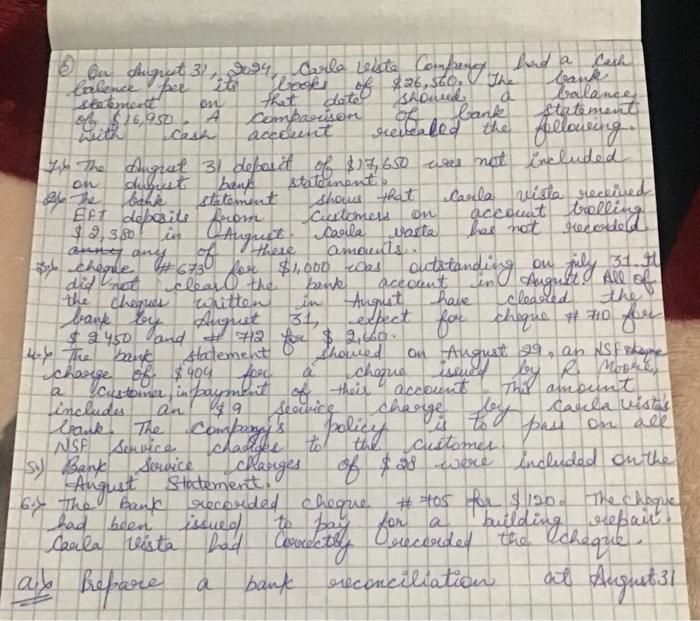 6) On August 31, 2024, Carla Vista Company had a cash
balence per its books of $26,560. The bank
statement on that date showed a balance
of $16,950. A comparison of bank statement
with cash account revealed the following.
1.) The August 31 deposit of $17,650 was not included
on august bank statement.
2.) The bank statement shows that Carla vista received
EFT deposits from customers on account trolling
$2,380 in August. Carla vasta has not recorded
any of these amounts.
3.) cheque #673 for $1,000 was outstanding on july 31. It
did not clear the bank account in August. All of
the cheques written in August have cleared the
bank by August 31, expect for cheque #710 for
$2450 and #712 for $2,660.
4.) The bank statement showed on August 29, an NSF
charge of $404 for a cheque issued by R. Moore,
a customer, in payment of their account. This amount
includes an $9 service charge by Carla vista's
bank. The company's policy is to pass on all
NSF service charges to the customer
5.) Bank service charges of $28 were included on the
August Statement.
6.) The bank recorded cheque #705 for $120. The cheque
had been issued to pay for a building repair.
Carla vista had correctly recorded the cheque.
a.) Prepare a bank reconciliation at August 31